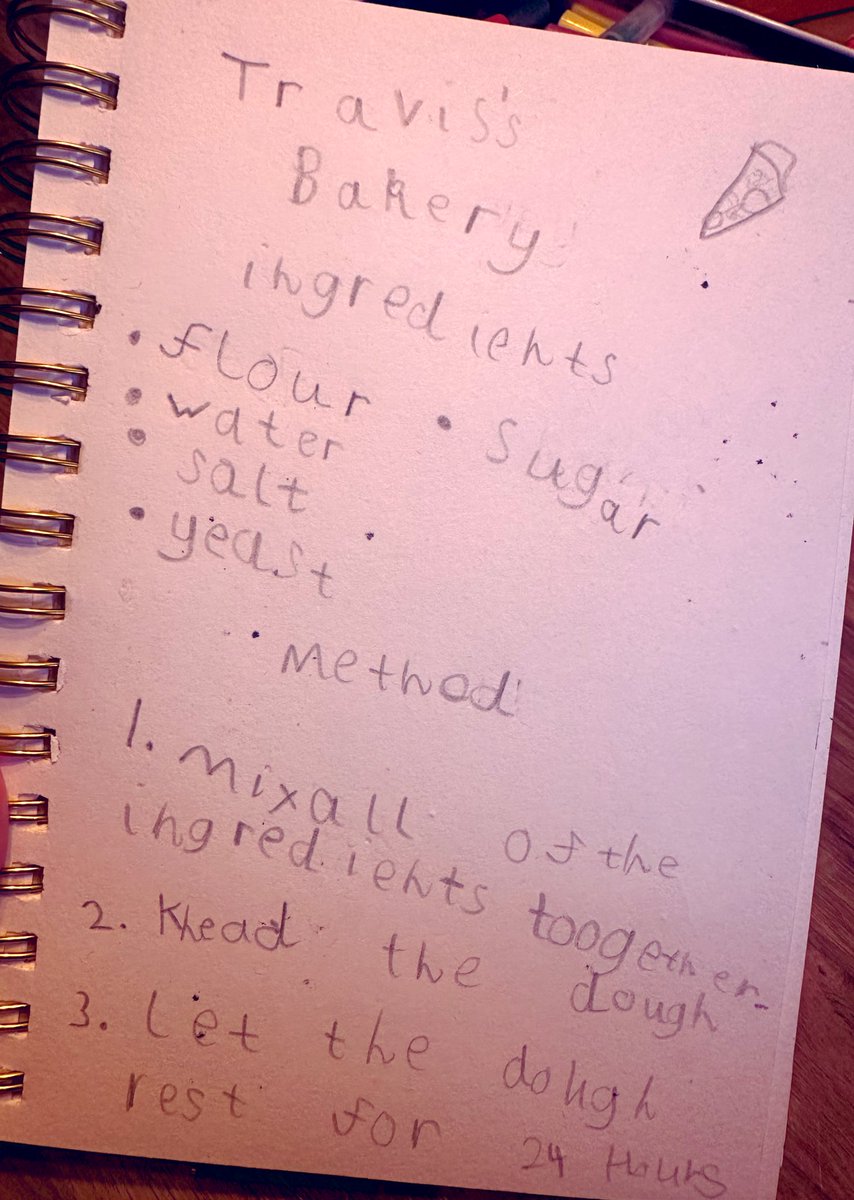 Travis's
Bakery
ingredients
• flour
• water
• salt
• yeast
• Sugar
Method
1. Mix all of the
ingredients toogether.
2. Knead the dough
3. let the dough
rest for 24 Hours